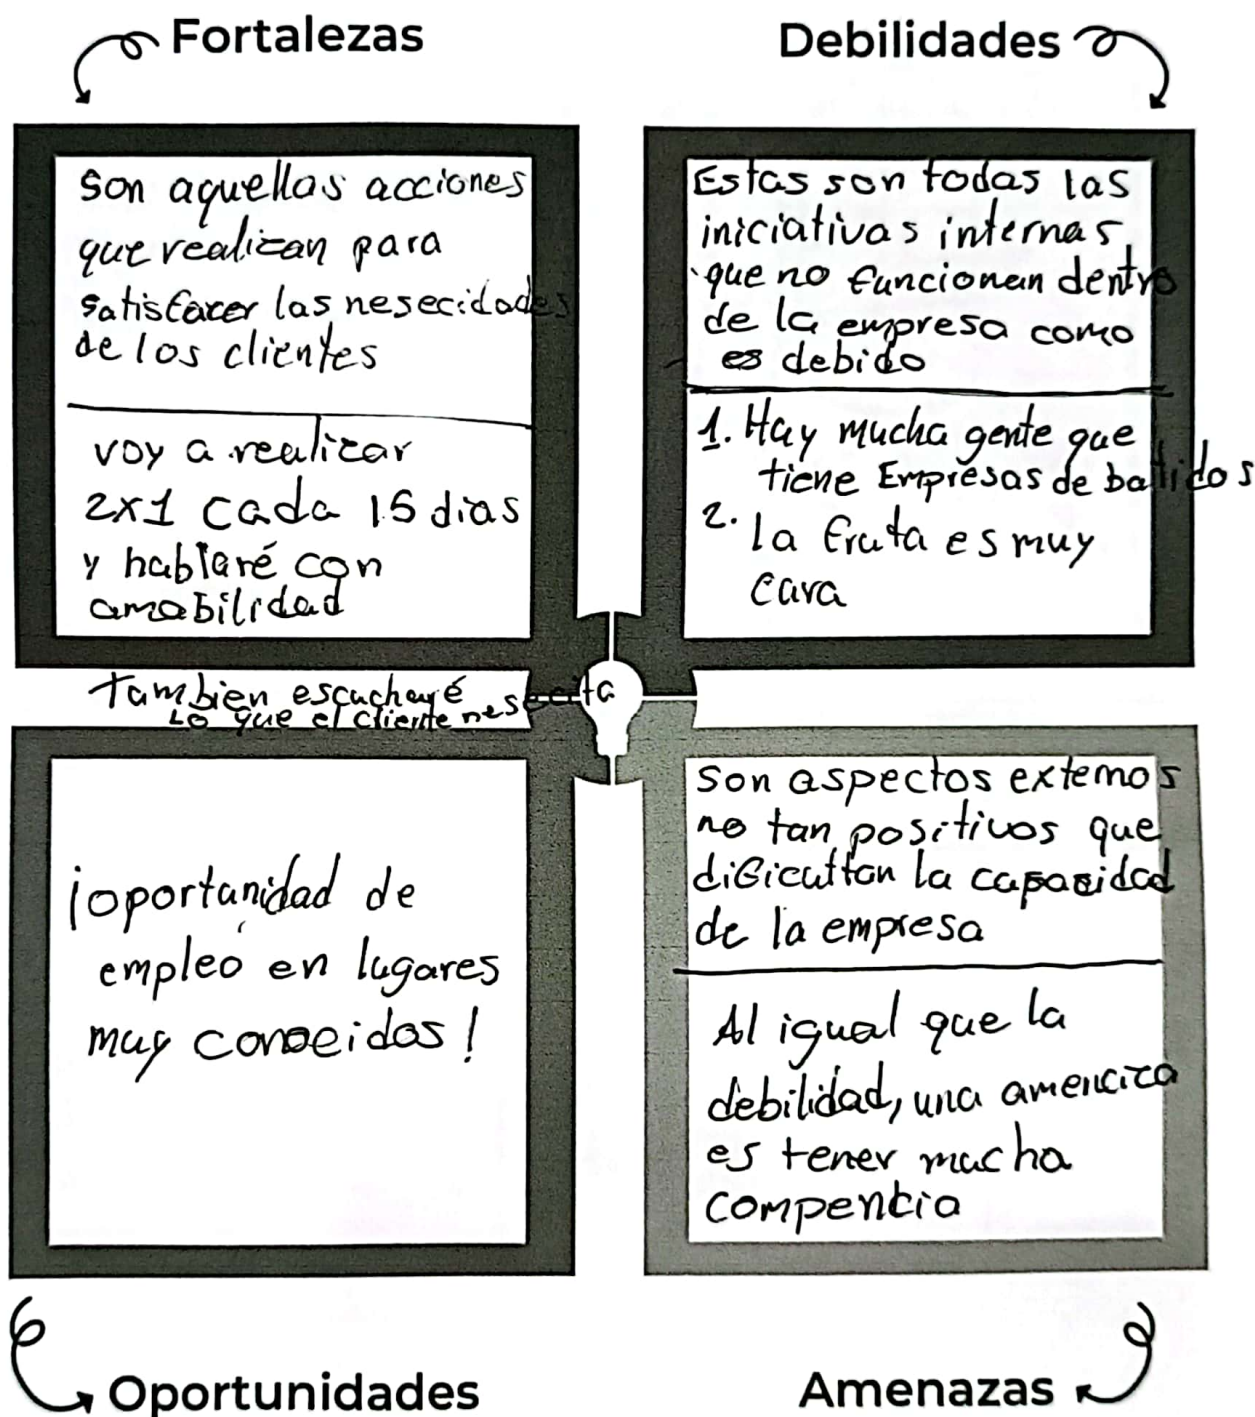 Fortalezas
son aquellas acciones
que realizan para
satisfacer las nesecidades
de los clientes
voy a realizar
2x1 cada 15 dias
y hablaré con
amabilidad
Tambien escucharé
Lo que el cliente nesecita
Debilidades
Estas son todas las
iniciativas internas
que no funcionan dentro
de la empresa como
es debido
1. Hay mucha gente que
tiene Empresas de batidos
2. la fruta es muy
cara
¡oportunidad de
empleo en lugares
muy conocidos!
Oportunidades
son aspectos externos
no tan positivos que
dificultan la capacidad
de la empresa
Al igual que la
debilidad, una
es tener mucha
compencia
Amenazas